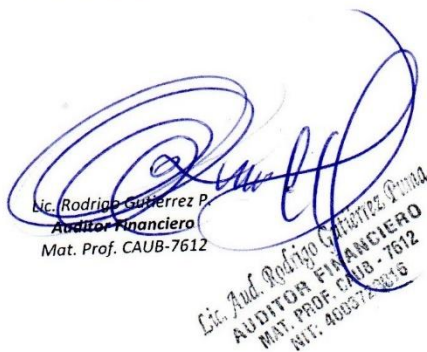 Lic. Rodrigo Gutierrez P.
Auditor Financiero
Mat. Prof. CAUB-7612
Lic. Aud. Rodrigo Gutierrez Puma
AUDITOR FINANCIERO
MAT. PROF. CAUB - 7612
NIT: